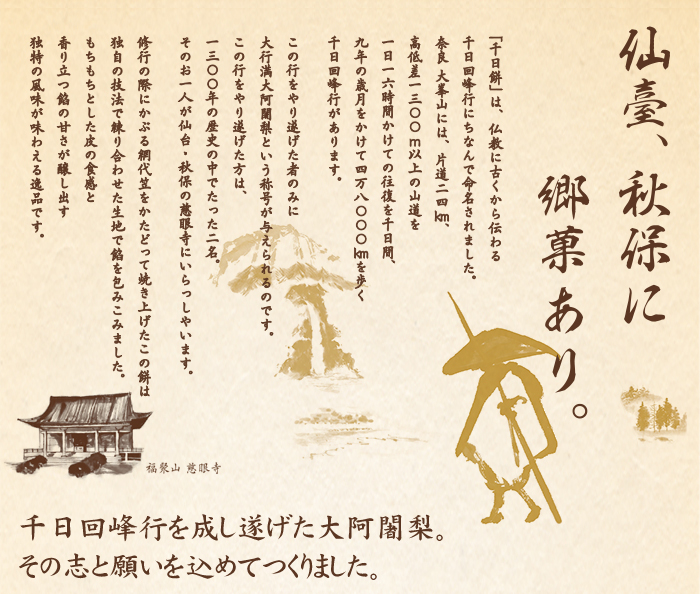 仙臺、秋保に
郷菓あり。
『千日餅』は、仏教に古くから伝わる
千日回峰行にちなんで命名されました。
奈良 大峯山には、片道二四㎞、
高低差一三〇〇ｍ以上の山道を
一日一六時間かけての往復を千日間、
九年の歳月をかけて四万八〇〇〇㎞を歩く
千日回峰行があります。
この行をやり遂げた者のみに
大行満大阿闍梨という称号が与えられるのです。
この行をやり遂げた方は、
一三〇〇年の歴史の中でたった二名。
そのお一人が仙台・秋保の慈眼寺にいらっしゃいます。
修行の際にかぶる網代笠をかたどって焼き上げたこの餅は
独自の技法で練り合わせた生地で餡を包みこみました。
もちもちとした皮の食感と
香り立つ餡の甘さが醸し出す
独特の風味が味わえる逸品です。
福聚山 慈眼寺
千日回峰行を成し遂げた大阿闍梨。
その志と願いを込めてつくりました。